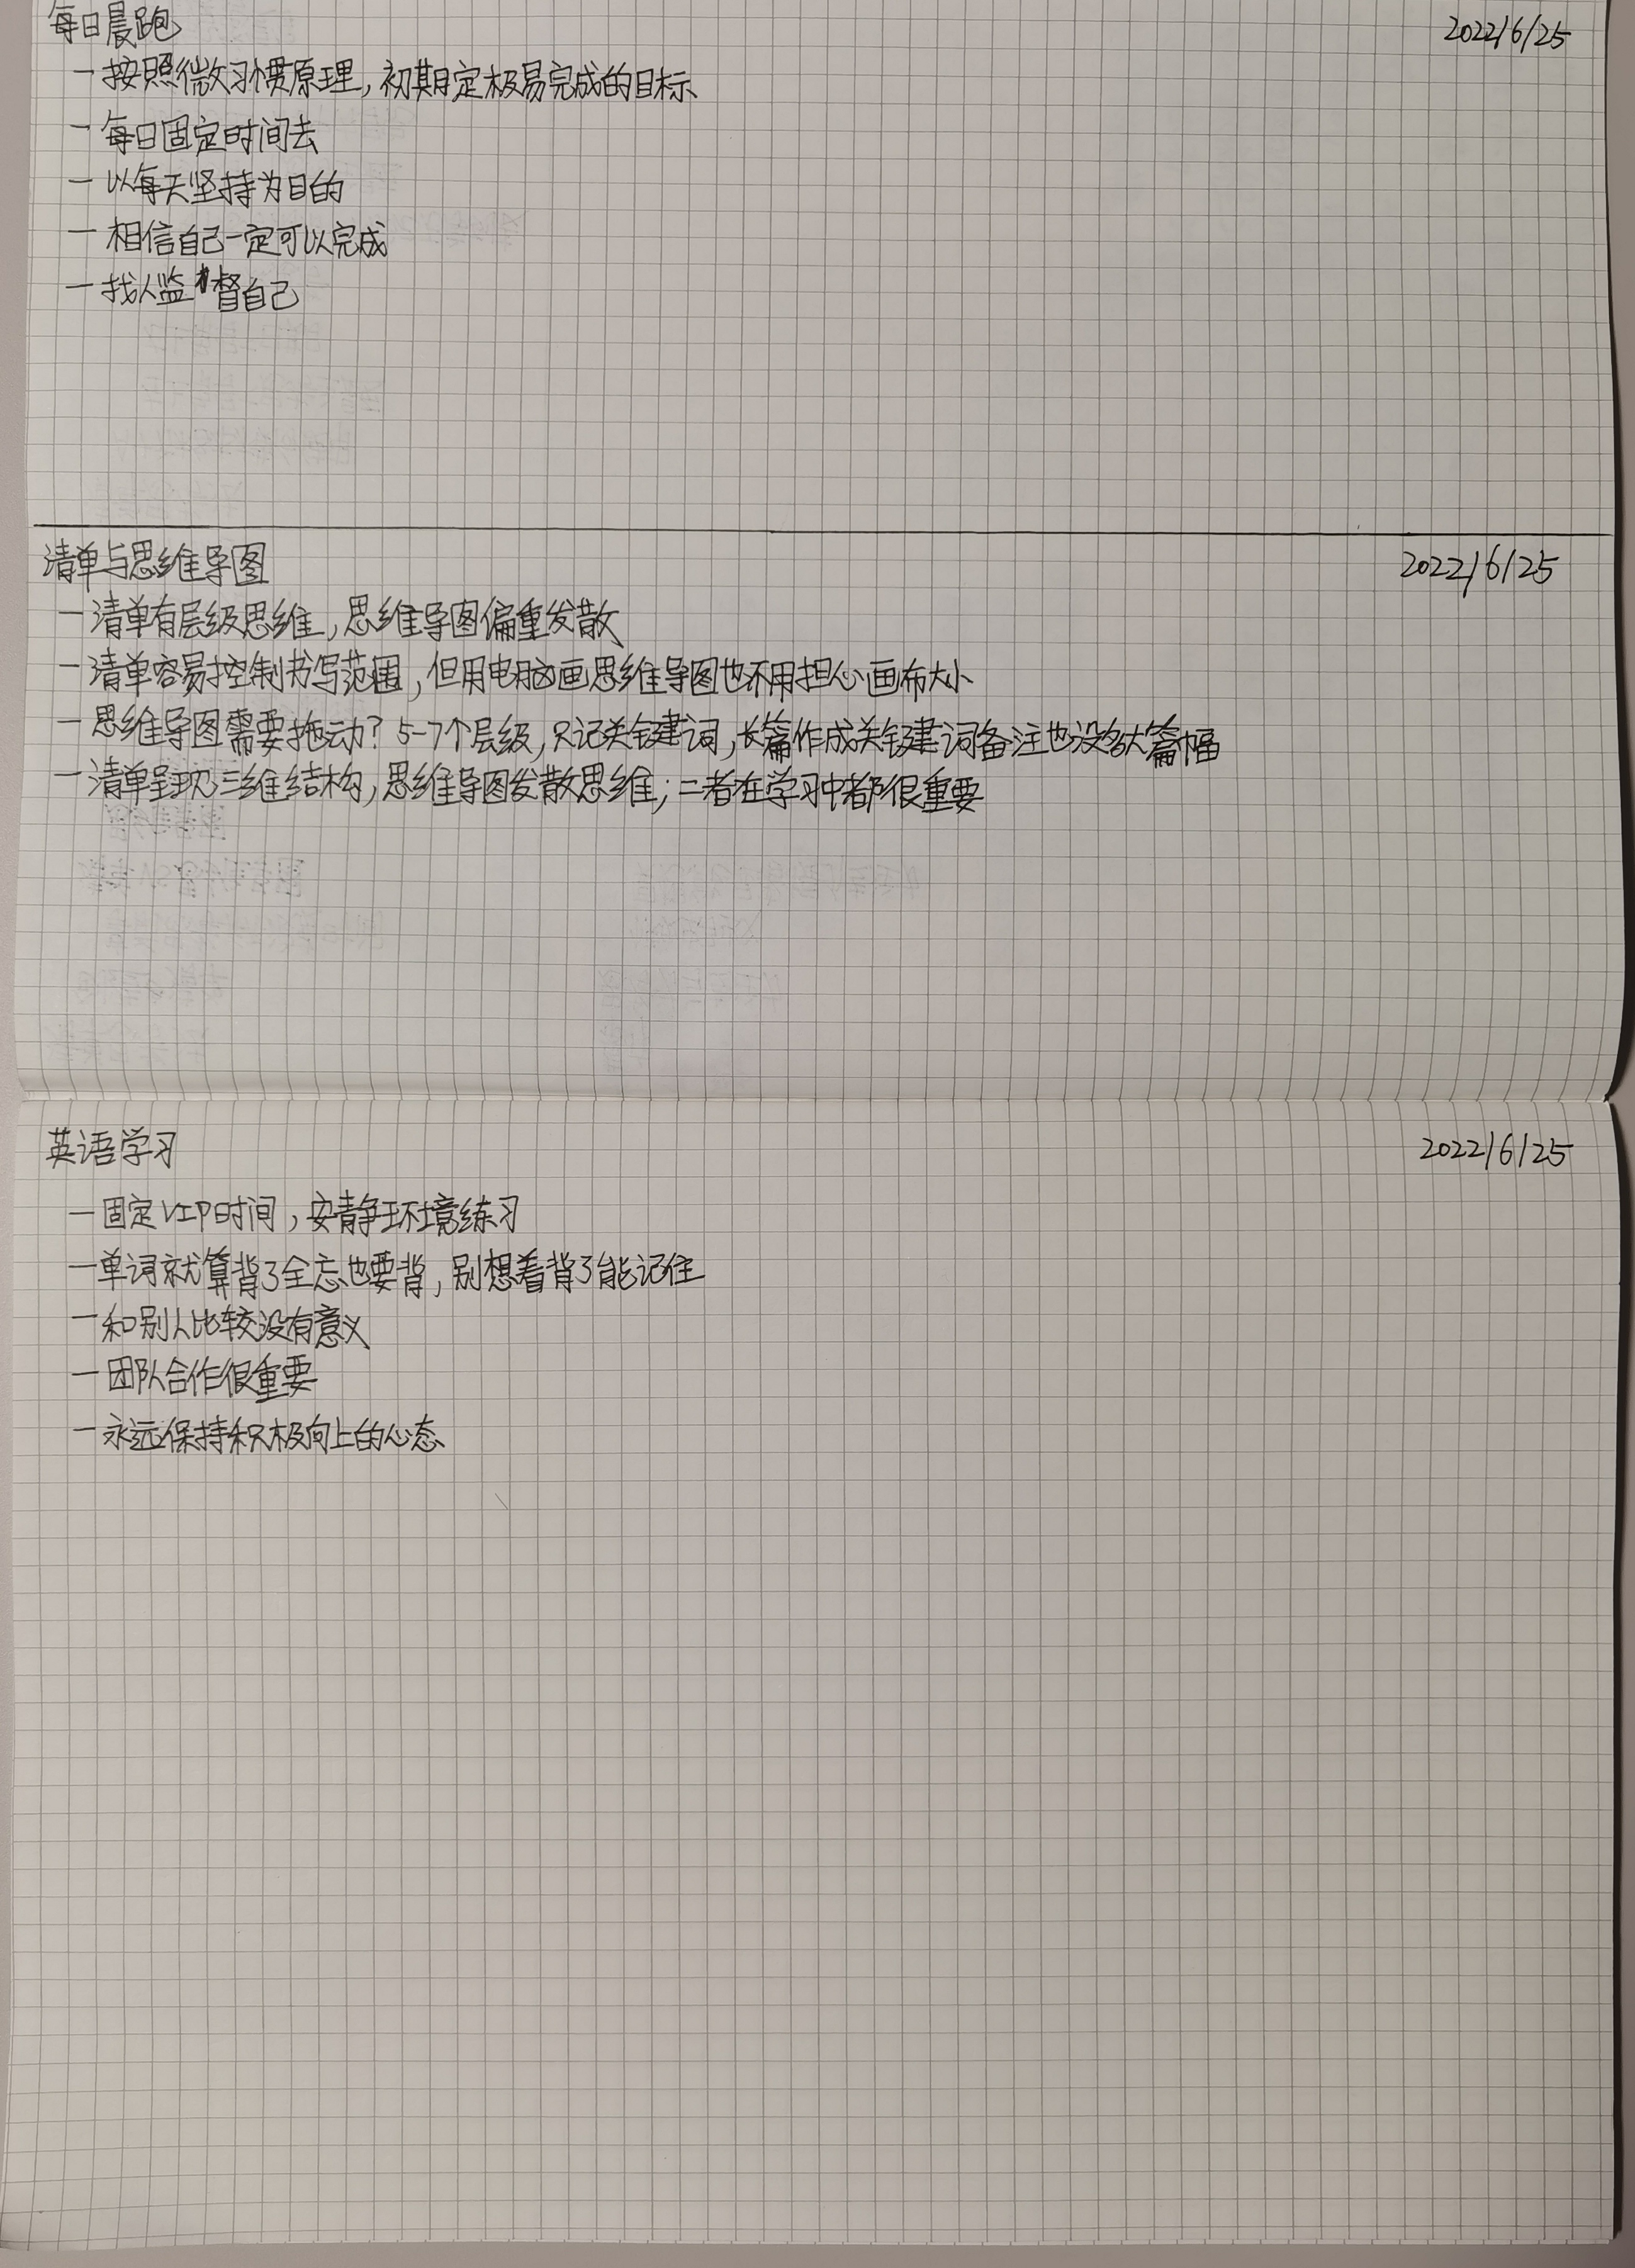 每日晨跑 2022/6/25
一按照微习惯原理,初期定极易完成的目标、
一每日固定时间去
一以每天坚持为目的
一相信自己一定可以完成
一找人监督自己
清单与思维导图 2022/6/25
一清单有层级思维,思维导图偏重发散
一清单容易控制书写范围,但用电脑画思维导图也不用担心画布大小
一思维导图需要拖动?5-7个层级,只记关键词,长篇作成关键词备注也没多大篇幅
一清单呈现三维结构,思维导图发散思维;二者在学习中都很重要
英语学习 2022/6/25
一固定VIP时间,安静环境练习
一单词就算背了全忘也要背,别想着背了能记住
一和别人比较没有意义
一团队合作很重要
一永远保持积极向上的心态